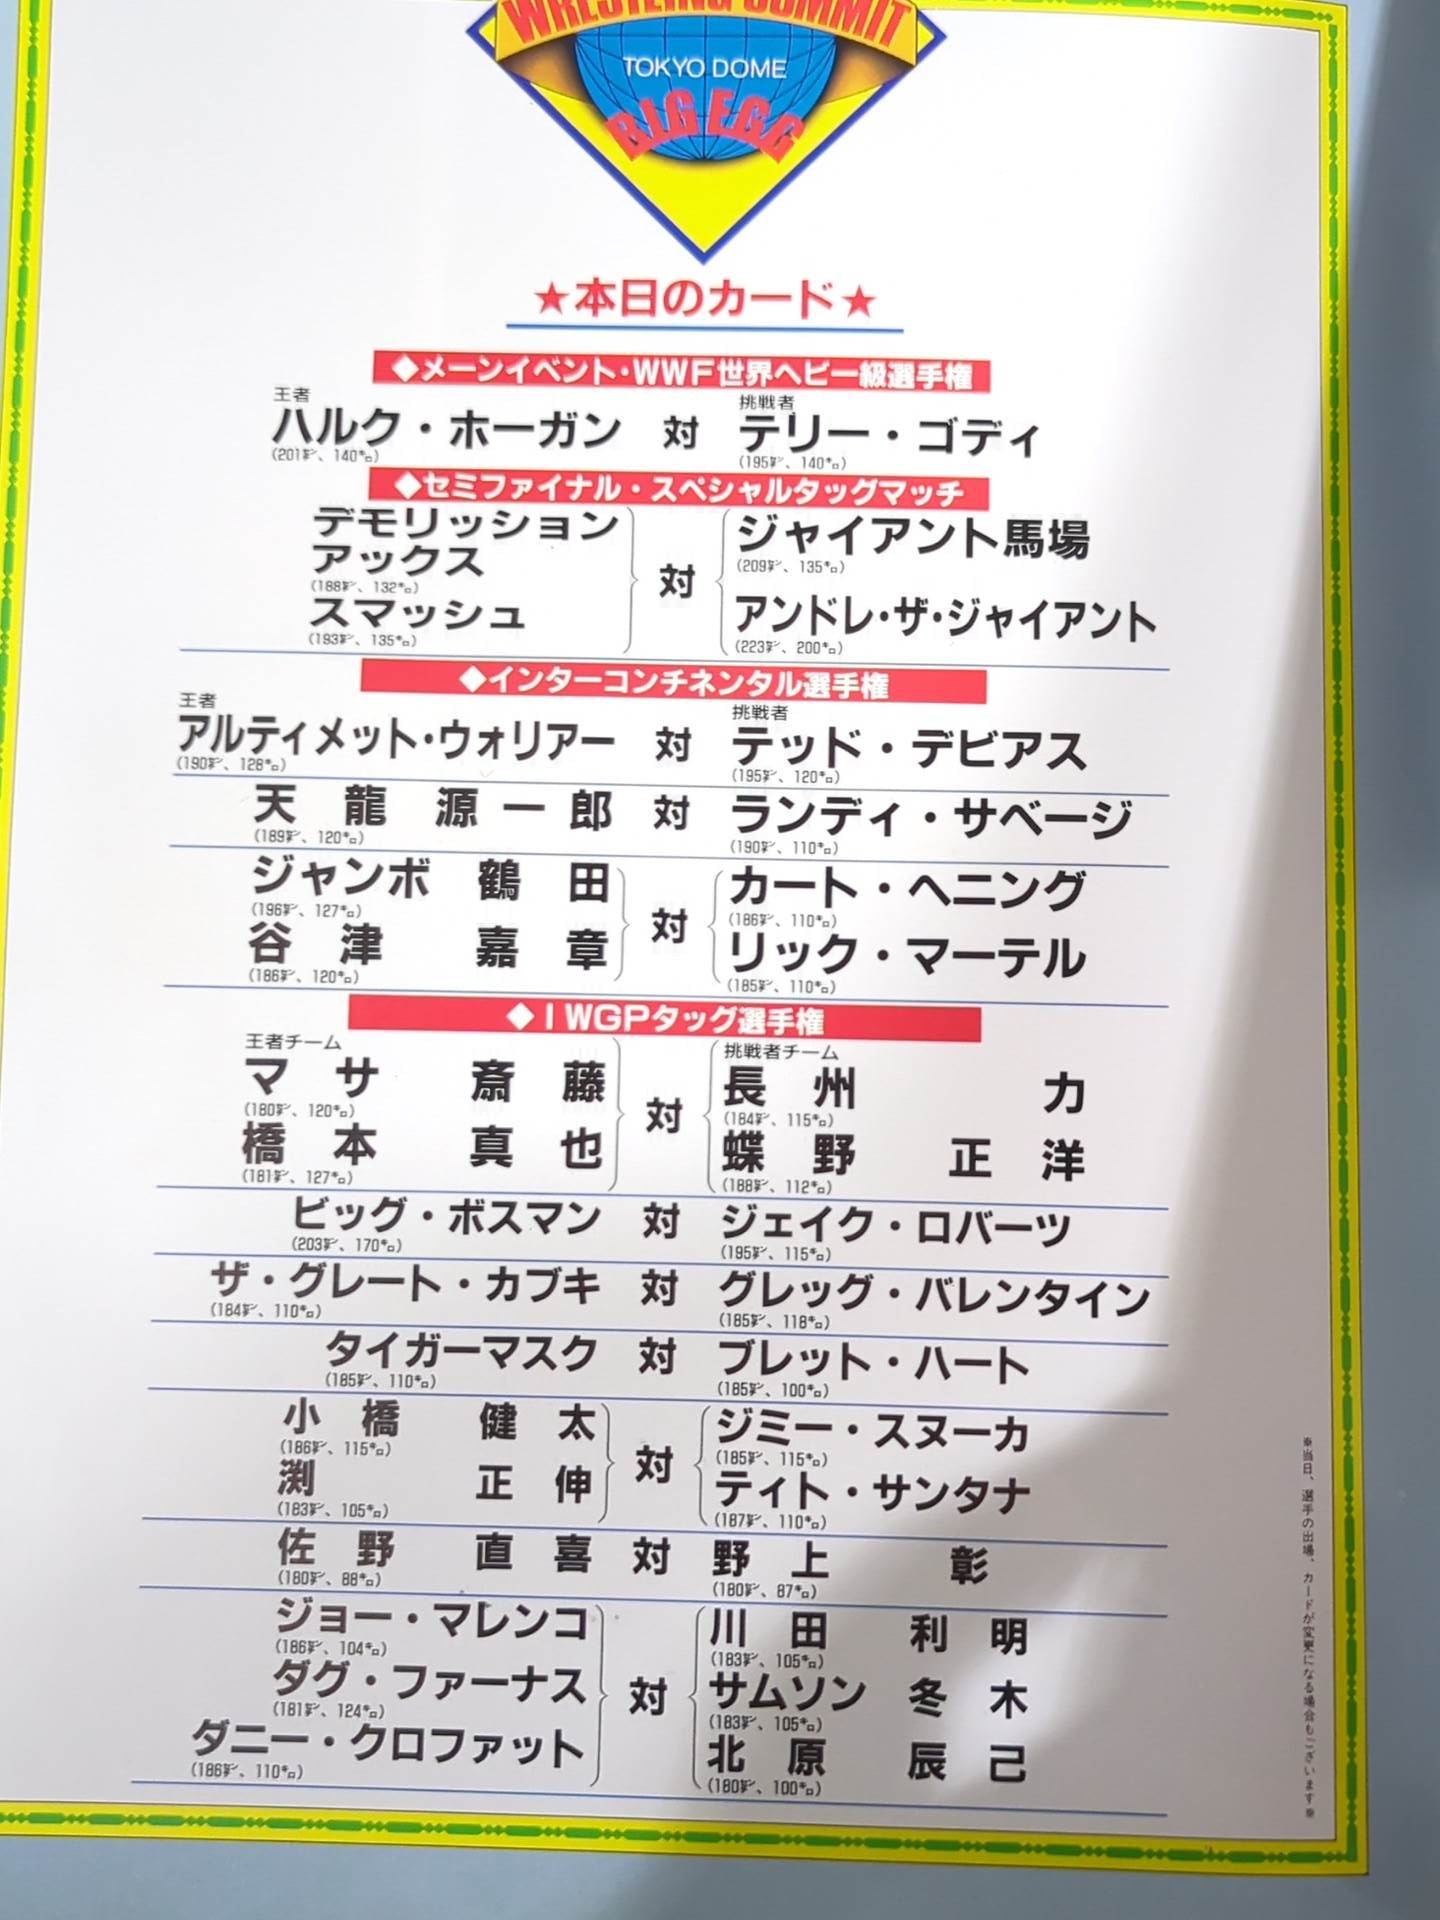 WRESTLING SUMMIT
TOKYO DOME
BIG EGG
★本日のカード★
◆メーンイベント・WWF世界ヘビー級選手権
王者 挑戦者
ハルク・ホーガン 対 テリー・ゴディ
(201㌢、140㌔) (195㌢、140㌔)
◆セミファイナル・スペシャルタッグマッチ
デモリッション
アックス
(188㌢、132㌔)
スマッシュ
(193㌢、135㌔)
対
ジャイアント馬場
(209㌢、135㌔)
アンドレ・ザ・ジャイアント
(223㌢、200㌔)
◆インターコンチネンタル選手権
王者 挑戦者
アルティメット・ウォリアー 対 テッド・デビアス
(190㌢、128㌔) (195㌢、120㌔)
天龍源一郎 対 ランディ・サベージ
(189㌢、120㌔) (190㌢、110㌔)
ジャンボ鶴田
(196㌢、127㌔)
谷津嘉章
(186㌢、120㌔)
対
カート・ヘニング
(186㌢、110㌔)
リック・マーテル
(185㌢、110㌔)
◆IWGPタッグ選手権
王者チーム
マサ斎藤
(180㌢、120㌔)
橋本真也
(181㌢、127㌔)
対
挑戦者チーム
長州力
(184㌢、115㌔)
蝶野正洋
(188㌢、112㌔)
ビッグ・ボスマン 対 ジェイク・ロバーツ
(203㌢、170㌔) (195㌢、115㌔)
ザ・グレート・カブキ 対 グレッグ・バレンタイン
(184㌢、110㌔) (185㌢、118㌔)
タイガーマスク 対 ブレット・ハート
(185㌢、110㌔) (185㌢、100㌔)
小橋健太
(186㌢、115㌔)
渕正伸
(183㌢、105㌔)
対
ジミー・スヌーカ
(185㌢、115㌔)
ティト・サンタナ
(187㌢、110㌔)
佐野直喜 対 野上彰
(180㌢、88㌔) (180㌢、87㌔)
ジョー・マレンコ
(186㌢、104㌔)
ダグ・ファーナス
(181㌢、124㌔)
ダニー・クロファット
(186㌢、110㌔)
対
川田利明
(183㌢、105㌔)
サムソン冬木
(183㌢、105㌔)
北原辰己
(180㌢、100㌔)
※当日、選手の出場、カードが変更になる場合もございます※